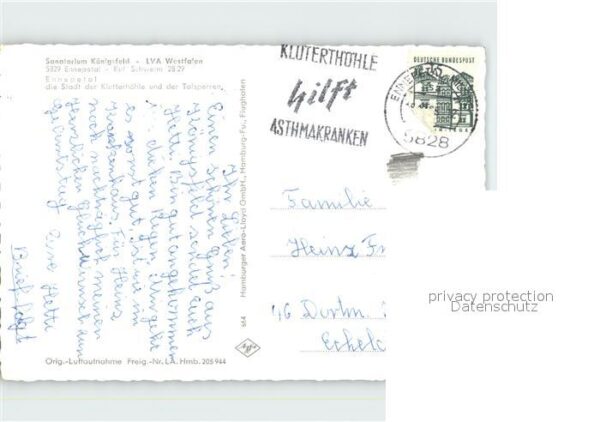 Sanatorium Königsfeld - LVA Westfalen
5829 Ennepetal - Ruf Schwelm 28 29
Ennepetal
die Stadt der Kluterthöhle und der Talsperren
KLUTERTHÖHLE
hilft
ASTHMAKRANKEN
DEUTSCHE BUNDESPOST
5828
Ihr Lieben!
Einen schönen Gruß aus
Königsfeld sendet euch
Hetti. Bin gut angekommen
Regen. Umgebung
es sonst gut, ist wie im
Krankenhaus. Für Heinz
noch nachträglich meinen
herzlichen Glückwunsch zum
Geburtstag. Eure Hetti
Brief folgt
Hamburger Aero-Lloyd GmbH., Hamburg-Fu., Flughafen
564
Familie
Heinz
46 Dortm.
Orig.-Luftaufnahme Freig.-Nr. L.A. Hmb. 205 944
privacy protection
Datenschutz